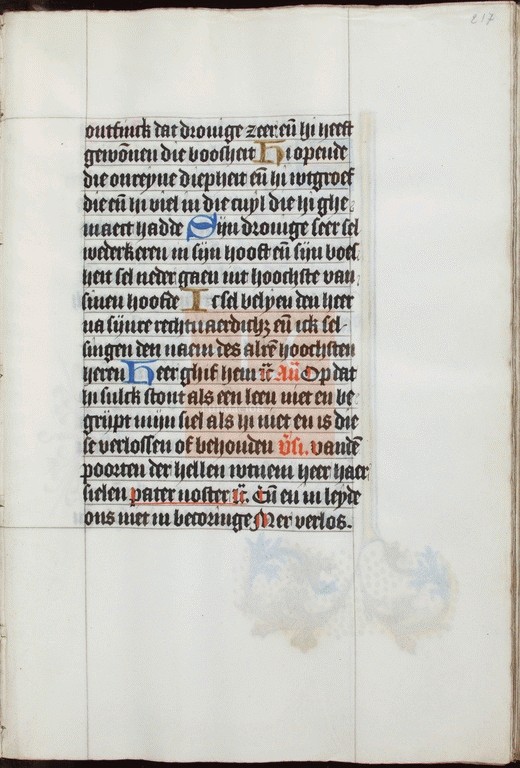 217
ontfinck dat drouige zeer eñ hi heeft
gewōnen die boosheit Hi opende
die onreyne diepheit eñ hi wtgroef
die eñ hi viel in die cuyl die hi ghe
maect hadde Sijn drouige seer sel
wederkeren in sijn hooft eñ sijn boes
heit sel neder gaen int hoochste van
sinen hoofde Ic sel belyen den heer
na sijnre rechtuaerdichz eñ ick sel-
singen den naem des alre hoochsten
heren Heer ghif hem r̄c Añ Op dat
hi sulck stont als een leeu niet en be
gript mijn siel als hi niet en is die
se verlossen of behouden v̄si. vandē
poorten der hellen wtnem heer haer
sielen pater noster r̄c. Eñ en in leyde
ons niet in becoringe Mer verlos.